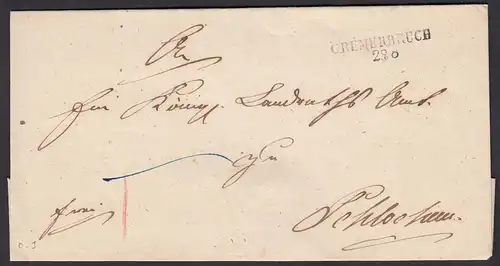 CREMERBRUCH
23 8
An
Ein Königl. Landraths Amt
zu
Schlochau.
frei